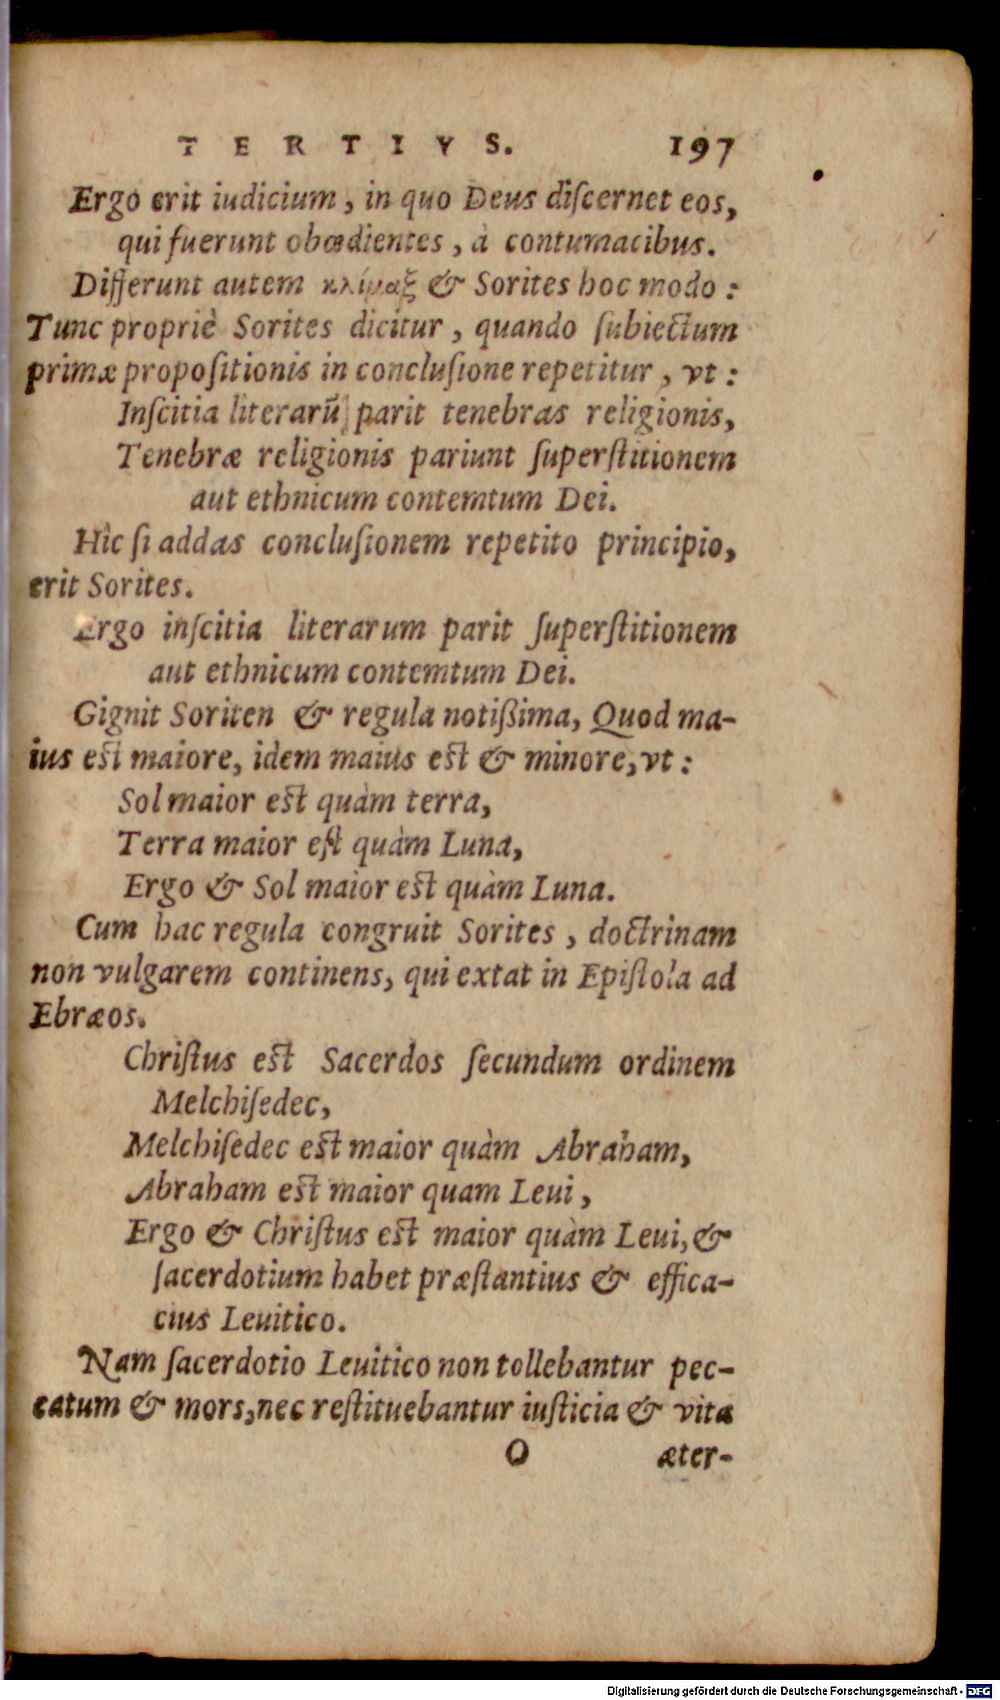 TERTIVS. 197
Ergo erit iudicium, in quo Deus diſcernet eos,
qui fuerunt obœdientes, à contumacibus.
Differunt autem κλίμαξ & Sorites hoc modo:
Tunc propriè Sorites dicitur, quando ſubiectum
primæ propoſitionis in concluſione repetitur, vt:
Inſcitia literarū parit tenebras religionis,
Tenebræ religionis pariunt ſuperſtitionem
aut ethnicum contemtum Dei.
Hîc ſi addas concluſionem repetito principio,
erit Sorites.
Ergo inſcitia literarum parit ſuperſtitionem
aut ethnicum contemtum Dei.
Gignit Soriten & regula notißima, Quod ma-
ius est maiore, idem maius est & minore, vt:
Sol maior est quàm terra,
Terra maior eſt quàm Luna,
Ergo & Sol maior est quàm Luna.
Cum hac regula congruit Sorites, doctrinam
non vulgarem continens, qui extat in Epiſtola ad
Ebræos.
Chriſtus est Sacerdos ſecundum ordinem
Melchiſedec,
Melchiſedec est maior quàm Abraham,
Abraham est maior quam Leui,
Ergo & Chriſtus est maior quàm Leui, &
ſacerdotium habet præſtantius & effica-
cius Leuitico.
Nam ſacerdotio Leuitico non tollebantur pec-
catum & mors, nec reſtituebantur iuſticia & vita
O æter-
Digitalisierung gefördert durch die Deutsche Forschungsgemeinschaft - DFG